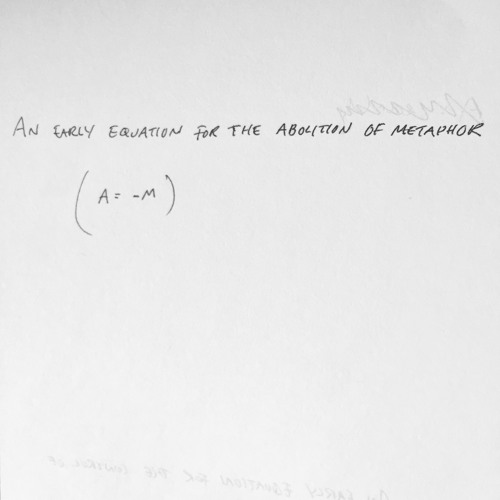 AN EARLY EQUATION FOR THE ABOLITION OF METAPHOR
(A = -M)